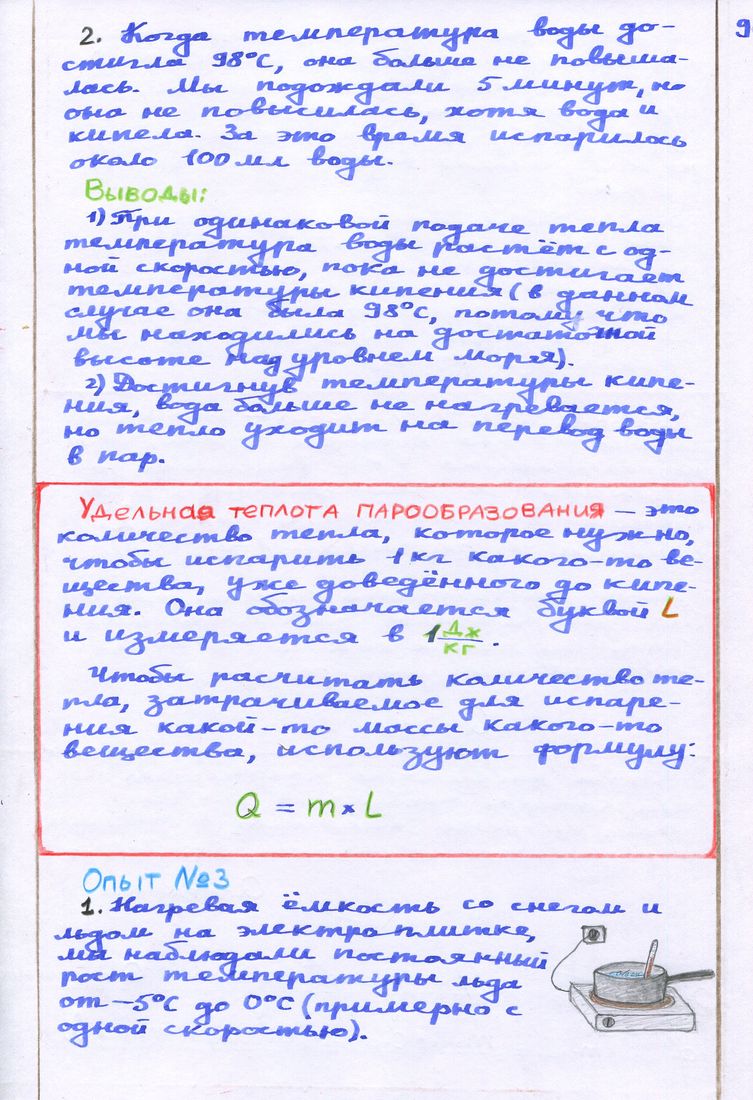 9
2. Когда температура воды до-
стигла 98°C, она больше не повыша-
лась. Мы подождали 5 минут, но
она не повысилась, хотя вода и
кипела. За это время испарилось
около 100 мл воды.
Выводы:
1) При одинаковой подаче тепла
температура воды растёт с од-
ной скоростью, пока не достигает
температуры кипения (в данном
случае она была 98°C, потому что
мы находились на достаточной
высоте над уровнем моря).
2) Достигнув температуры кипе-
ния, вода больше не нагревается,
но тепло уходит на перевод воды
в пар.
Удельная теплота парообразования – это
количество тепла, которое нужно,
чтобы испарить 1 кг какого-то ве-
щества, уже доведённого до кипе-
ния. Она обозначается буквой L
и измеряется в 1 Дж/кг.
Чтобы расчитать количество те-
пла, затрачиваемое для испаре-
ния какой-то массы какого-то
вещества, используют формулу:
Q = m × L
Опыт №3
1. Нагревая ёмкость со снегом и
льдом на электроплитке,
мы наблюдали постоянный
рост температуры льда
от -5°C до 0°C (примерно с
одной скоростью).